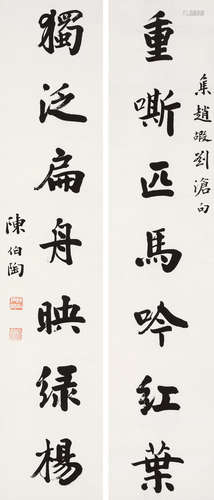 重嘶匹馬吟紅葉
集趙嘏劉滄句
獨泛扁舟映綠楊
陳伯陶